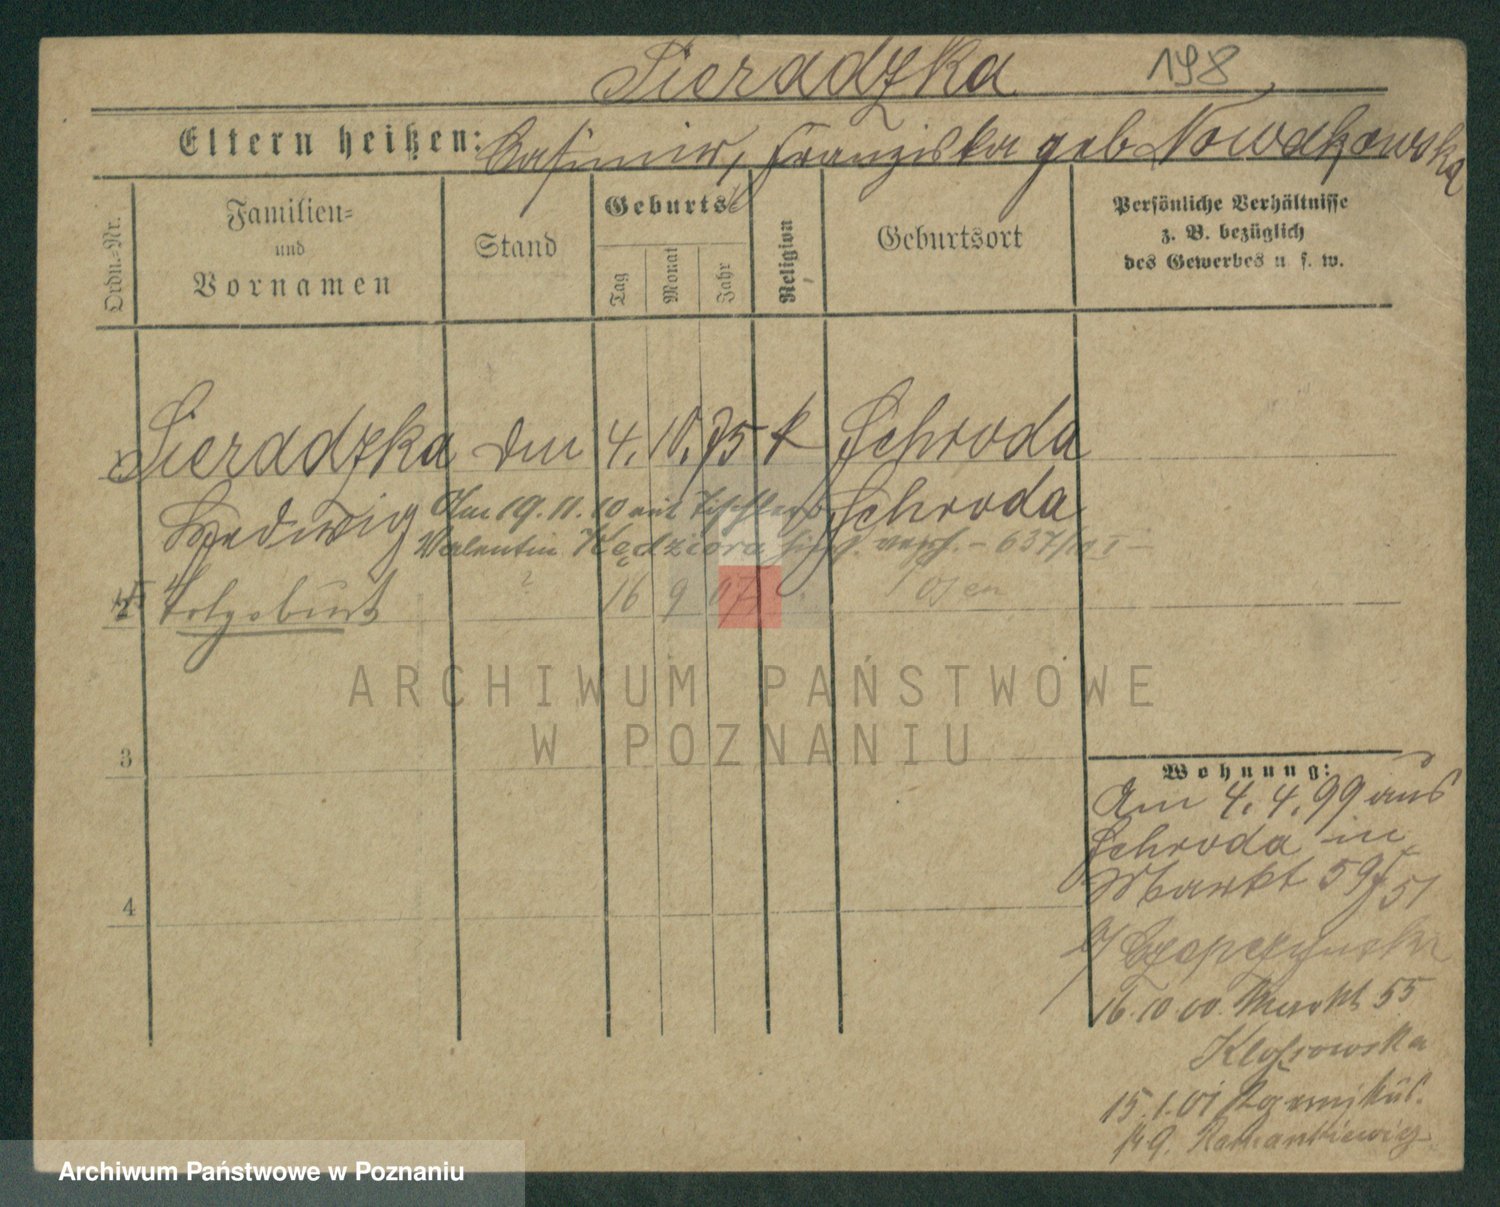 Sieradzka 198
Eltern heißen: Casimir, Franziska geb Nowakowska
Ordn.-Nr.
Familien- und Vornamen
Stand
Geburts
Tag
Monat
Jahr
Religion
Geburtsort
Persönliche Verhältnisse
z. B. bezüglich
des Gewerbes u. s. w.
1 Sieradzka 4. 10. 75 k Schroda
Hedwig Schroda
Am 19. 11. 10 mit Tischler
Valentin Kędziora 637/10 I
2 Totgeburt ? 16 9 07 Posen
3
ARCHIWUM PAŃSTWOWE
W POZNANIU
Wohnung:
Am 4. 4. 99 aus
Schroda in
Markt 59 51
b/
4
16. 10. 00. Markt 55
15. 1. 01
Archiwum Państwowe w Poznaniu